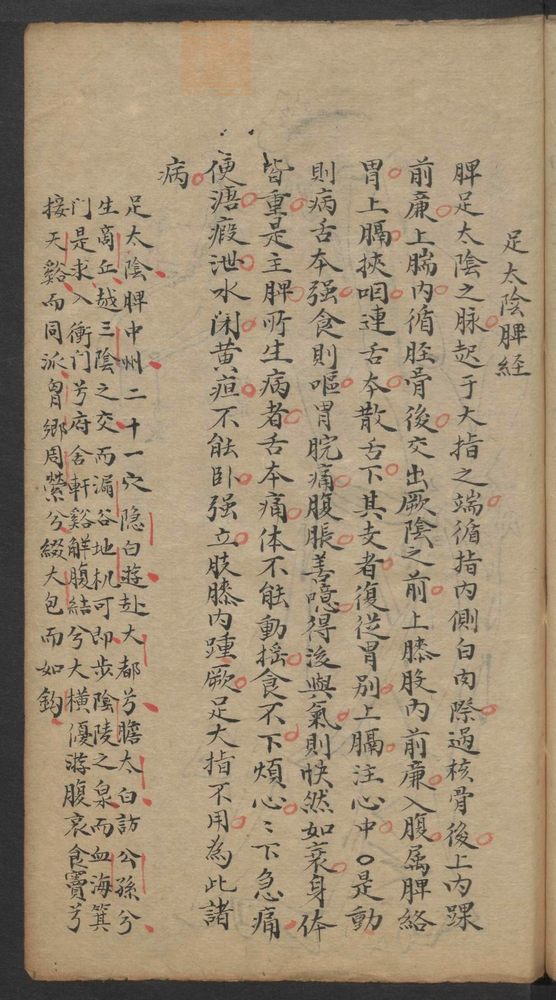 足太陰脾経
脾足太陰之脉起于大指之端循指内側白肉際過核骨後上内踝
前廉上腨内循胫骨後交出厥陰之前上膝股内前廉入腹属脾絡
胃上膈挾咽連舌本散舌下其支者復従胃別上膈注心中○是動
則病舌本强食則嘔胃脘痛腹脹善噫得後與氣則快然如衰身体
皆重是主脾所生病者舌本痛体不能動揺食不下煩心〻下急痛
便溏瘕泄水闭黄疸不能卧强立股膝内踵厥足大指不用為此諸
病
足太陰脾中州二十一穴隐白遊赴大都兮瞻太白訪公孫兮
生商丘越三陰之交而漏谷地机可即步陰陵之泉而血海箕
门是求入衝门兮府舍軒谿觧腹結兮大橫優游腹哀食竇兮
接天谿而同派胷鄉周榮兮綴大包而如鈎